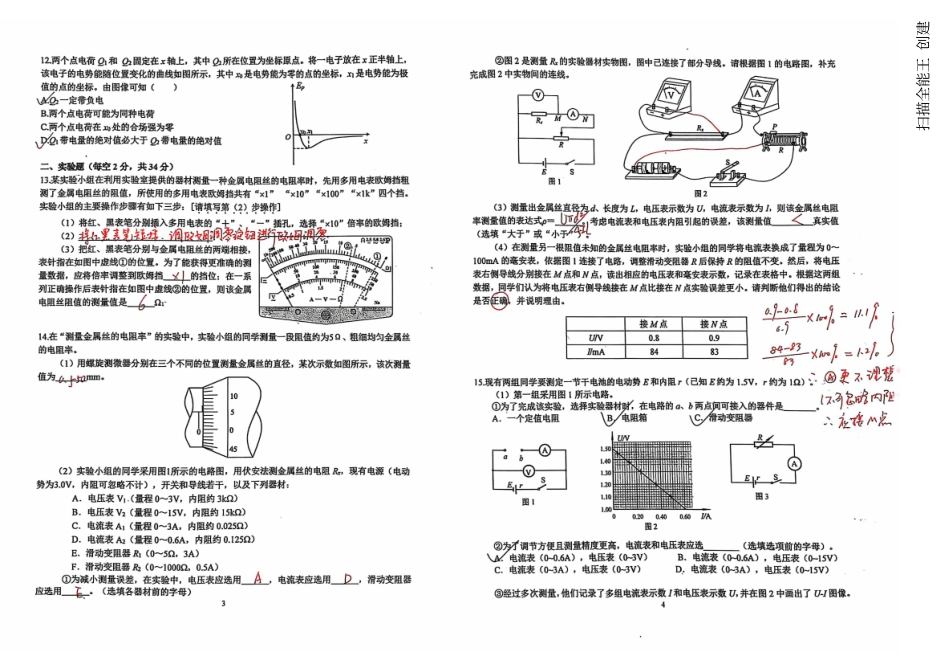 12.两个点电荷 Q₁和 Q₂固定在 x 轴上，其中 Q₂所在位置为坐标原点。将一电子放在 x 正半轴上，
该电子的电势能随位置变化的曲线如图所示，其中 x₀是电势能为零的点的坐标，x₁是电势能为极
值的点的坐标。由图像可知（ ）
A.Q₂一定带负电
B.两个点电荷可能为同种电荷
C.两个点电荷在 x₀处的合场强为零
D.Q₁带电量的绝对值必大于 Q₂带电量的绝对值
Eₚ
O
x₀x₁
x
二、实验题（每空 2 分，共 34 分）
13.某实验小组在利用实验室提供的器材测量一种金属电阻丝的电阻率时，先用多用电表欧姆挡粗
测了金属电阻丝的阻值，所使用的多用电表欧姆挡共有“×1”“×10”“×100”“×1k”四个挡。
实验小组的主要操作步骤有如下三步：[请填写第（2）步操作]
（1）将红、黑表笔分别插入多用电表的“＋”、“－”插孔，选择“×10”倍率的欧姆挡；
（2）
（3）把红、黑表笔分别与金属电阻丝的两端相接，
表针指在如图中虚线①的位置。为了能获得更准确的测
量数据，应将倍率调整到欧姆挡 ×1 的挡位；在一系
列正确操作后表针指在如图中虚线②的位置，则该金属
电阻丝阻值的测量值是 6 Ω；
A－V－Ω
14.在“测量金属丝的电阻率”的实验中，实验小组的同学测量一段阻值约为5Ω、粗细均匀金属丝
的电阻率。
（1）用螺旋测微器分别在三个不同的位置测量金属丝的直径，某次示数如图所示，该次测量
值为 mm。
10
5
0
45
0
（2）实验小组的同学采用图1所示的电路图，用伏安法测金属丝的电阻 Rₓ，现有电源（电动
势为3.0V，内阻可忽略不计），开关和导线若干，以及下列器材：
A．电压表 V₁（量程 0～3V，内阻约 3kΩ）
B．电压表 V₂（量程 0～15V，内阻约 15kΩ）
C．电流表 A₁（量程 0～3A，内阻约 0.025Ω）
D．电流表 A₂（量程 0～0.6A，内阻约 0.125Ω）
E．滑动变阻器 R₁（0～5Ω，3A）
F．滑动变阻器 R₂（0～1000Ω，0.5A）
①为减小测量误差，在实验中，电压表应选用 A ，电流表应选用 D ，滑动变阻器
应选用 E 。（选填各器材前的字母）
3
②图 2 是测量 Rₓ的实验器材实物图，图中已连接了部分导线。请根据图 1 的电路图，补充
完成图 2 中实物间的连线。
V
Rₓ M A N
R
E S
图 1
V
A
Rₓ
P
R
S
图 2
（3）测量出金属丝直径为 d、长度为 L，电压表示数为 U，电流表示数为 I，则该金属丝电阻
率测量值的表达式ρ= ，考虑电流表和电压表内阻引起的误差，该测量值 < 真实值
（选填“大于”或“小于”）。
（4）在测量另一根阻值未知的金属丝电阻率时，实验小组的同学将电流表换成了量程为 0～
100mA 的毫安表，依据图 1 连接了电路，调整滑动变阻器 R 后保持 R 的阻值不变。然后，将电压
表右侧导线分别接在 M 点和 N 点，读出相应的电压表和毫安表示数，记录在表格中。根据这两组
数据，同学们认为将电压表右侧导线接在 M 点比接在 N 点实验误差更小。请判断他们得出的结论
是否正确，并说明理由。
接 M 点 接 N 点
U/V 0.8 0.9
I/mA 84 83
0.9-0.8/0.9 ×100% = 11.1%
84-83/83 ×100% = 1.2%
∴ Ⓐ更不理想
∴应接M点
15.现有两组同学要测定一节干电池的电动势 E 和内阻 r（已知 E 约为 1.5V，r 约为 1Ω）：
（1）第一组采用图 1 所示电路。
①为了完成该实验，选择实验器材时，在电路的 a、b 两点间可接入的器件是 。
A．一个定值电阻 B．电阻箱 C．滑动变阻器
a b A
V
E r S
图 1
U/V
1.50
1.40
1.30
1.20
1.10
1.00
0 0.20 0.40 0.60 I/A
图 2
R
A
E r S
图 3
②为了调节方便且测量精度更高，电流表和电压表应选 （选填选项前的字母）。
A．电流表（0~0.6A），电压表（0~3V） B．电流表（0~0.6A），电压表（0~15V）
C．电流表（0~3A），电压表（0~3V） D．电流表（0~3A），电压表（0~15V）
③经过多次测量，他们记录了多组电流表示数 I 和电压表示数 U，并在图 2 中画出了 U-I 图像。
4
扫描全能王 创建